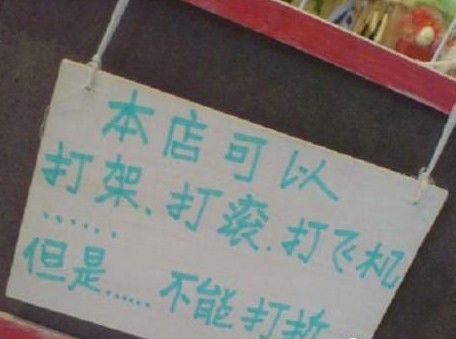 本店可以
打架、打滚、打飞机
......
但是......不能打折